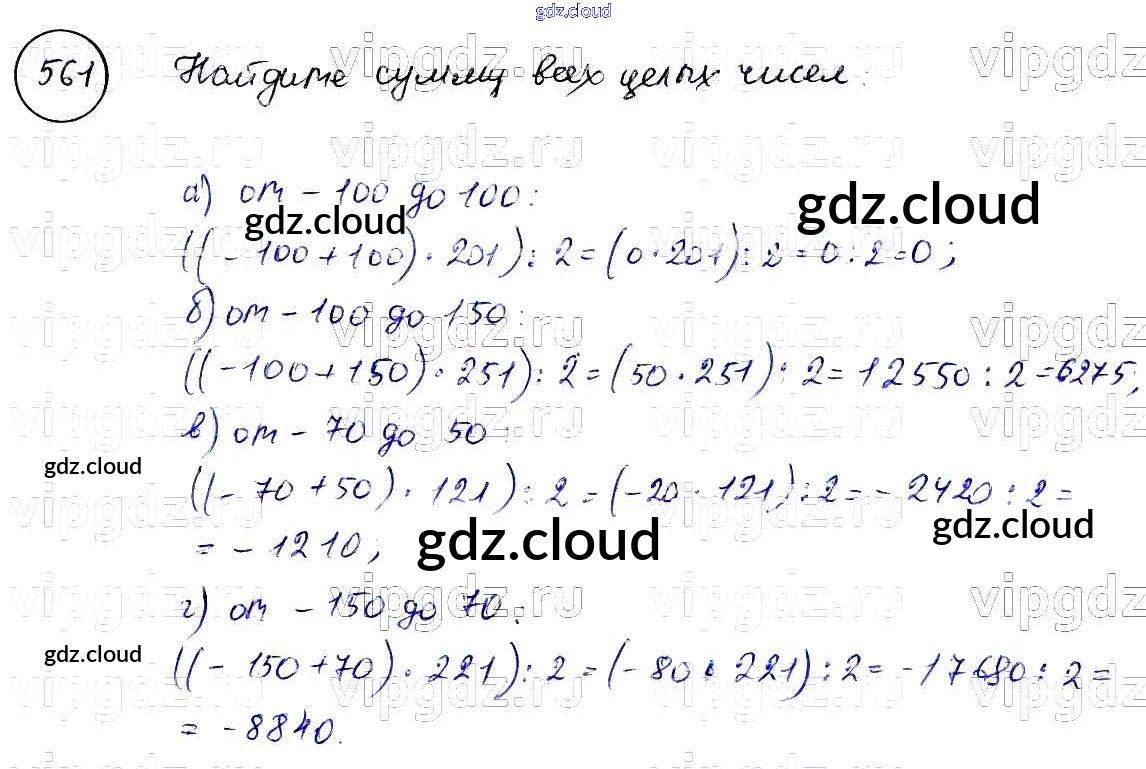 gdz.cloud
561 Найдите сумму всех целых чисел:
а) от -100 до 100:
gdz.cloud gdz.cloud
((-100+100)·201):2=(0·201):2=0:2=0;
б) от -100 до 150:
((-100+150)·251):2=(50·251):2=12550:2=6275;
в) от -70 до 50:
gdz.cloud
((-70+50)·121):2=(-20·121):2=-2420:2=
gdz.cloud
=-1210;
gdz.cloud
г) от -150 до 70:
gdz.cloud
((-150+70)·221):2=(-80·221):2=-17680:2=
=-8840.
vipgdz.ru